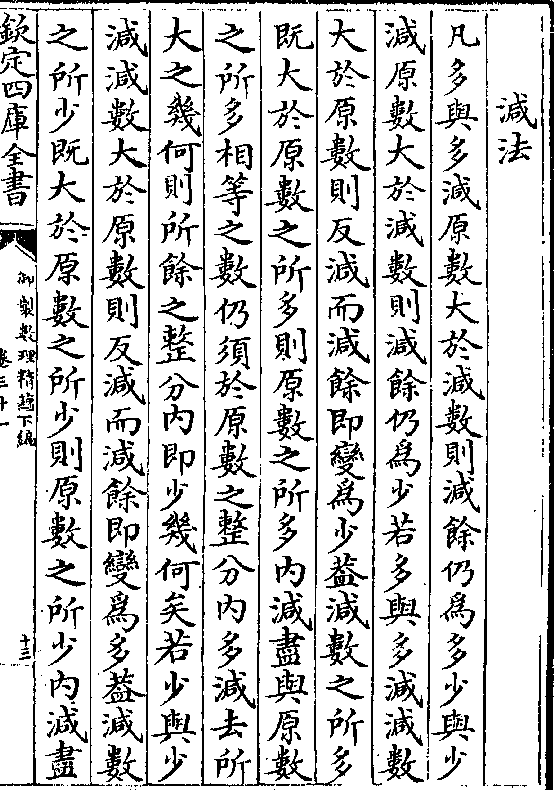 減法
凡多與多減原數大於減數則減餘仍爲多少與少
減原數大於減數則減餘仍爲少若多與多減減數
大於原數則反減而減餘即變爲少葢減數之所多
既大於原數之所多則原數之所多内減盡與原數
之所多相等之數仍須於原數之整分内多減去所
大之幾何則所餘之整分内即少幾何矣若少與少
減減數大於原數則反減而減餘即變爲多葢減數
之所少既大於原數之所少則原數之所少内減盡
欽定四庫全書
御製數理精藴下編
卷三十一
十三